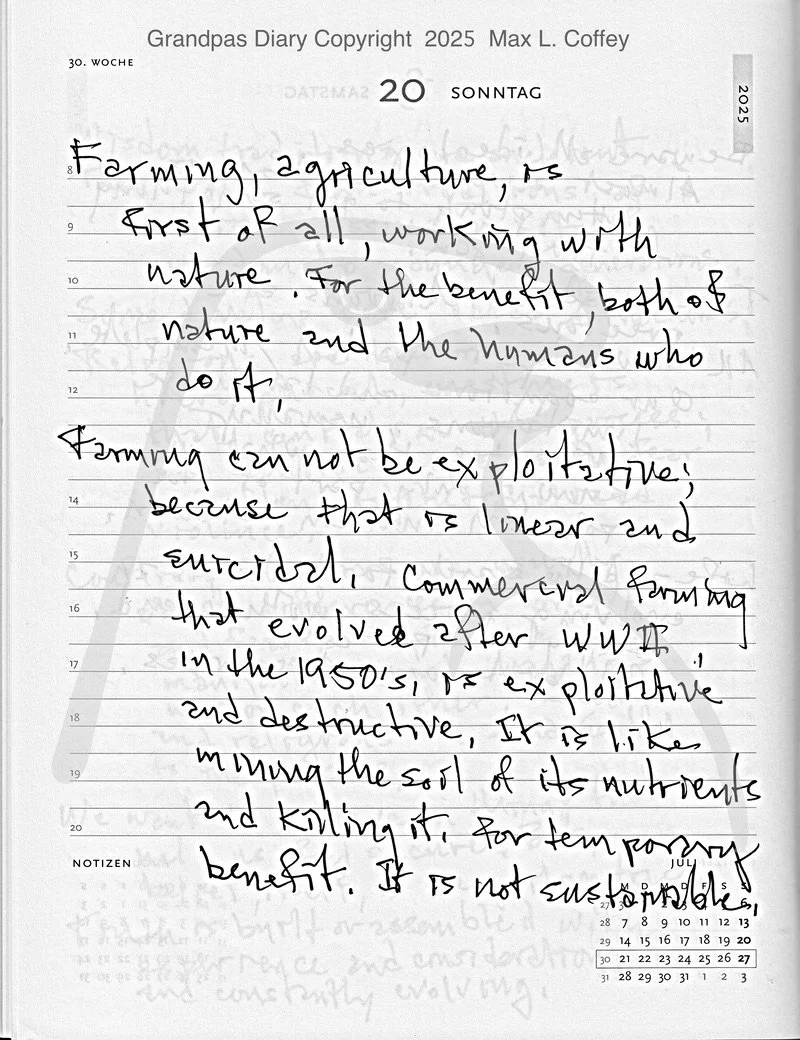 Grandpas Diary Copyright 2025 Max L. Coffey
30. WOCHE
20 SONNTAG
2025
Farming, agriculture, is
8
first of all, working with
9
nature. For the benefit, both of
10
nature and the humans who
11
do it,
12
Farming can not be exploitative;
because that is linear and
14
suicidal. Commercial farming
15
that evolved after WWII,
16
in the 1950's, is exploitative
17
and destructive. It is like
18
mining the soil of its nutrients
19
and killing it. For temporary
20
benefit. It is not sustainable.
NOTIZEN
JULI
M D M D F S S
27 6
28 7 8 9 10 11 12 13
29 14 15 16 17 18 19 20
30 21 22 23 24 25 26 27
31 28 29 30 31 1 2 3